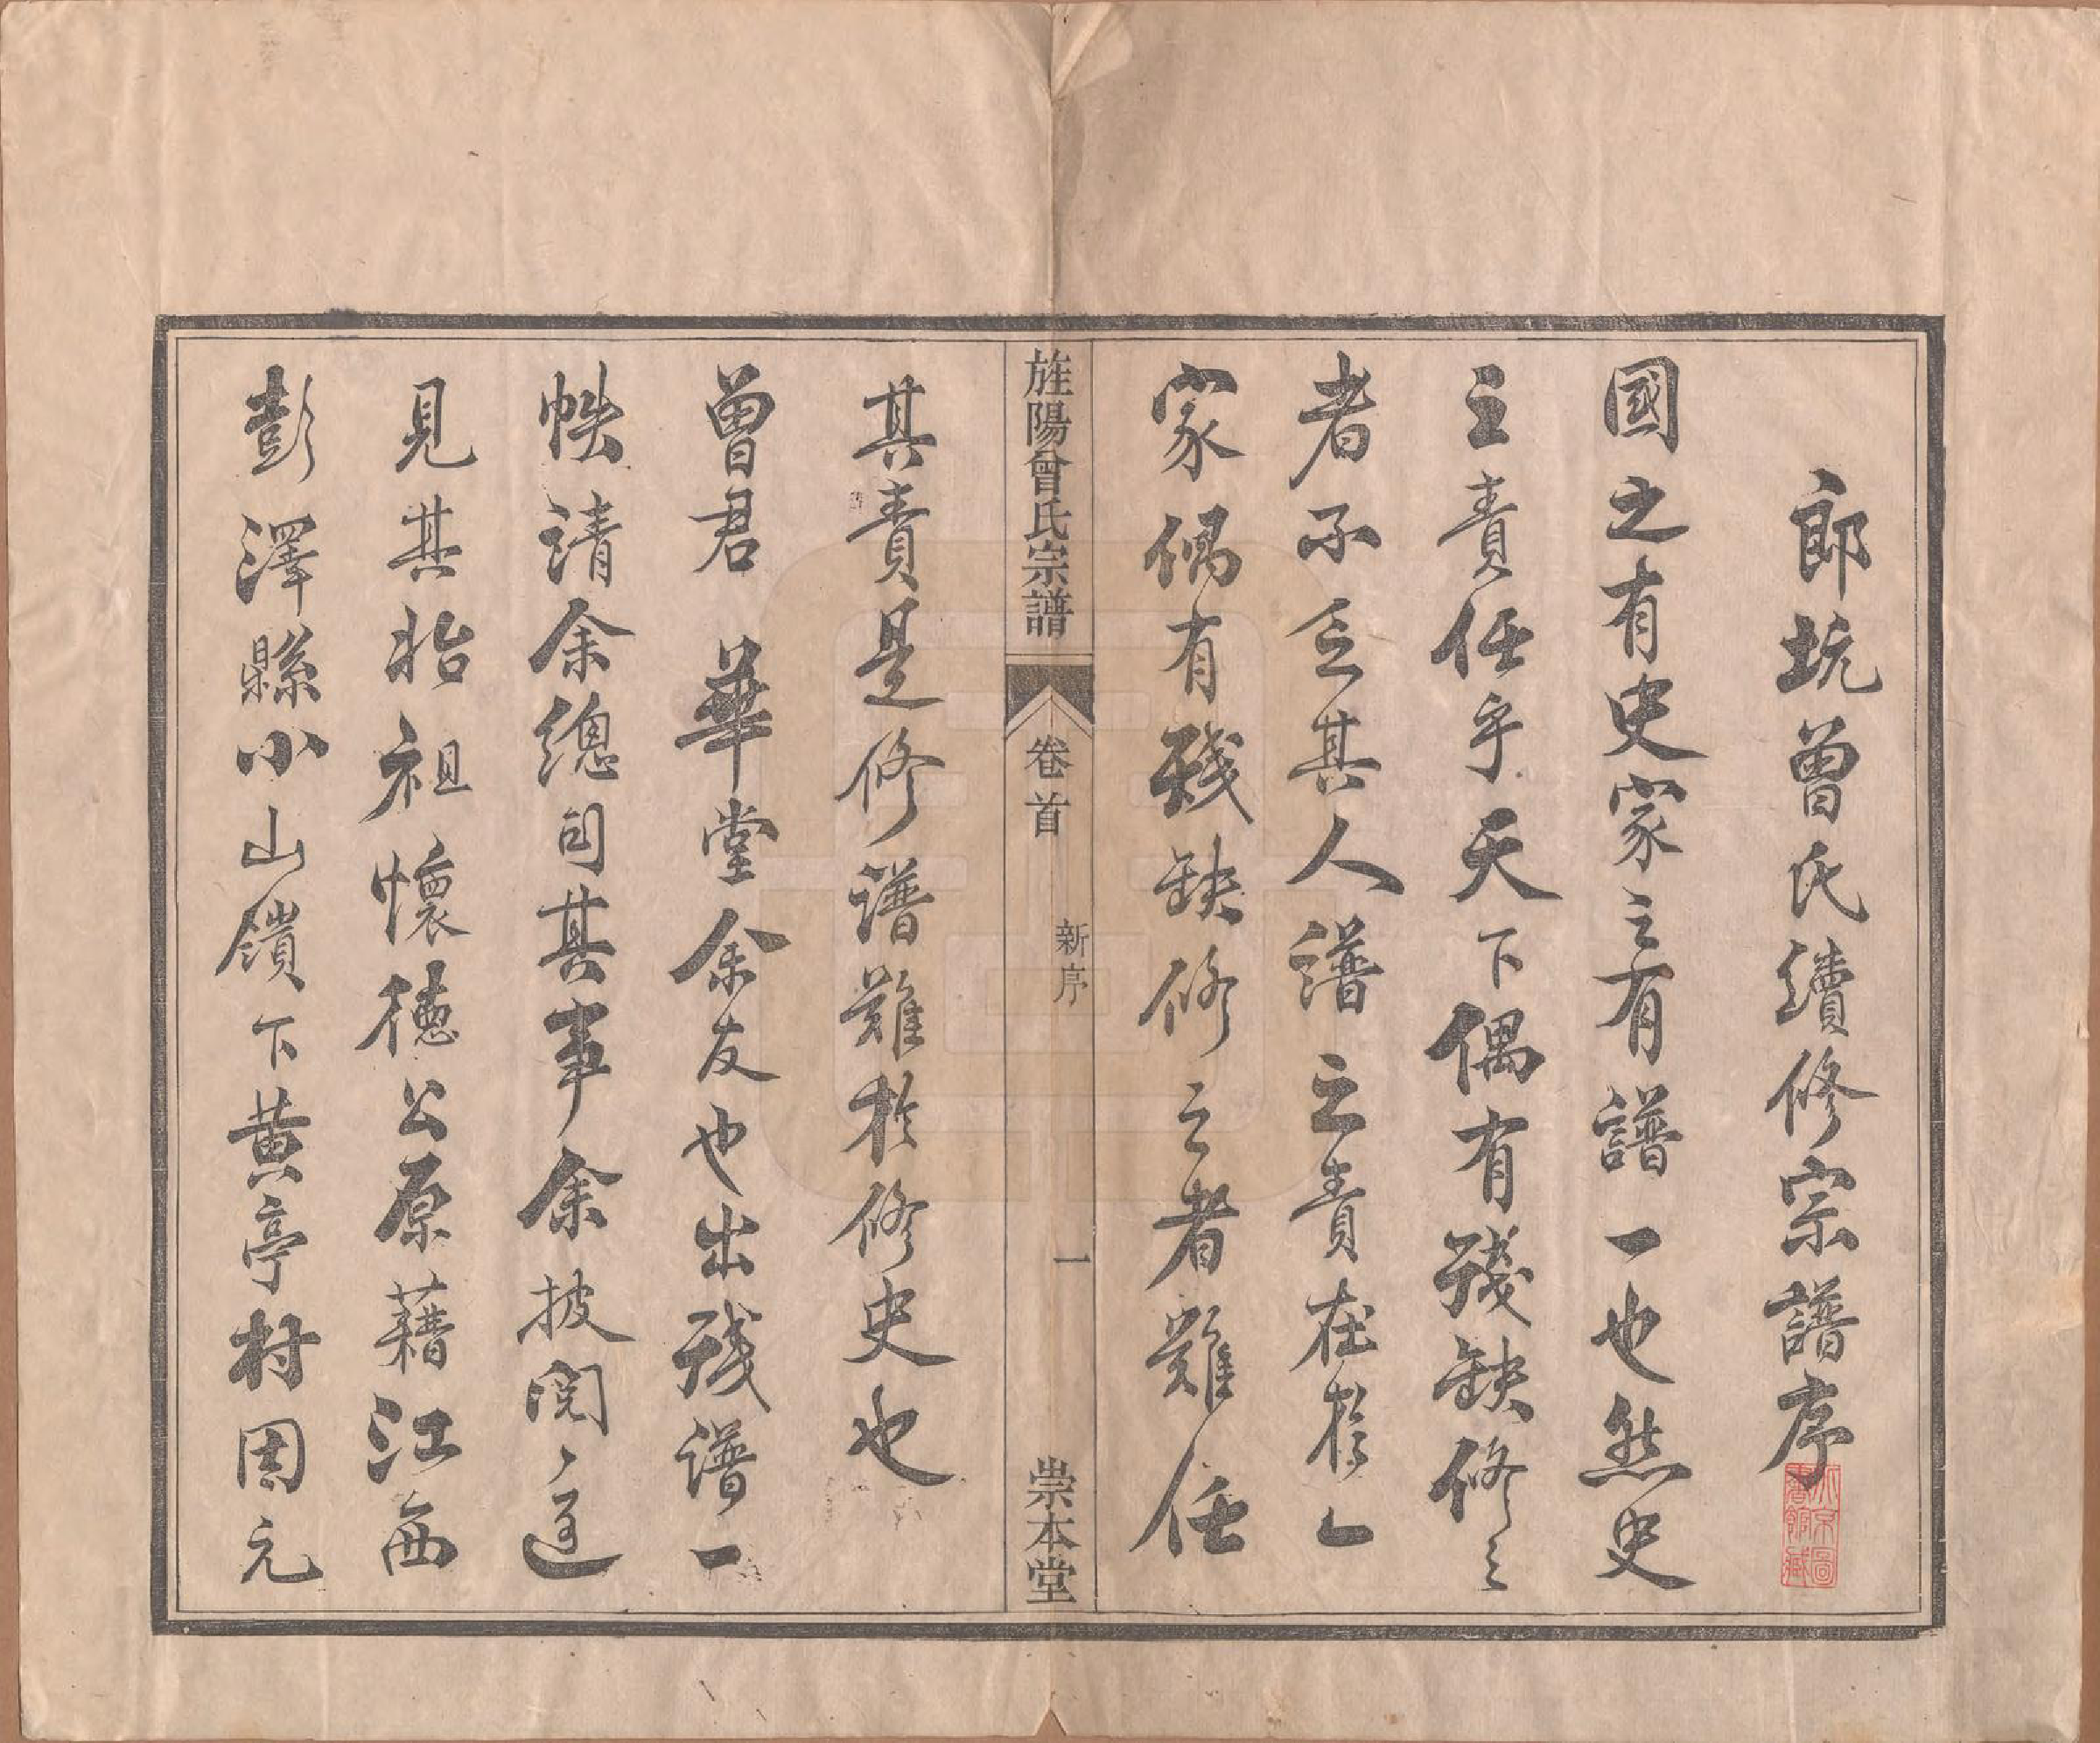 郎坑曾氏續修宗譜序
國之有史家之有譜一也然史
之責任乎天下偶有殘缺修之
者不乏其人譜之責在於一
家偶有殘缺修之者難任
其責是修譜難於修史也
曾君 華堂余友也出殘譜一
帙請余總司其事余披閱之遥
見其始祖懷德公原藉江西
彭澤縣小山鎮下黄亭村因元
旌陽曾氏宗譜
卷首
新序
一
崇本堂
北京圖書館藏